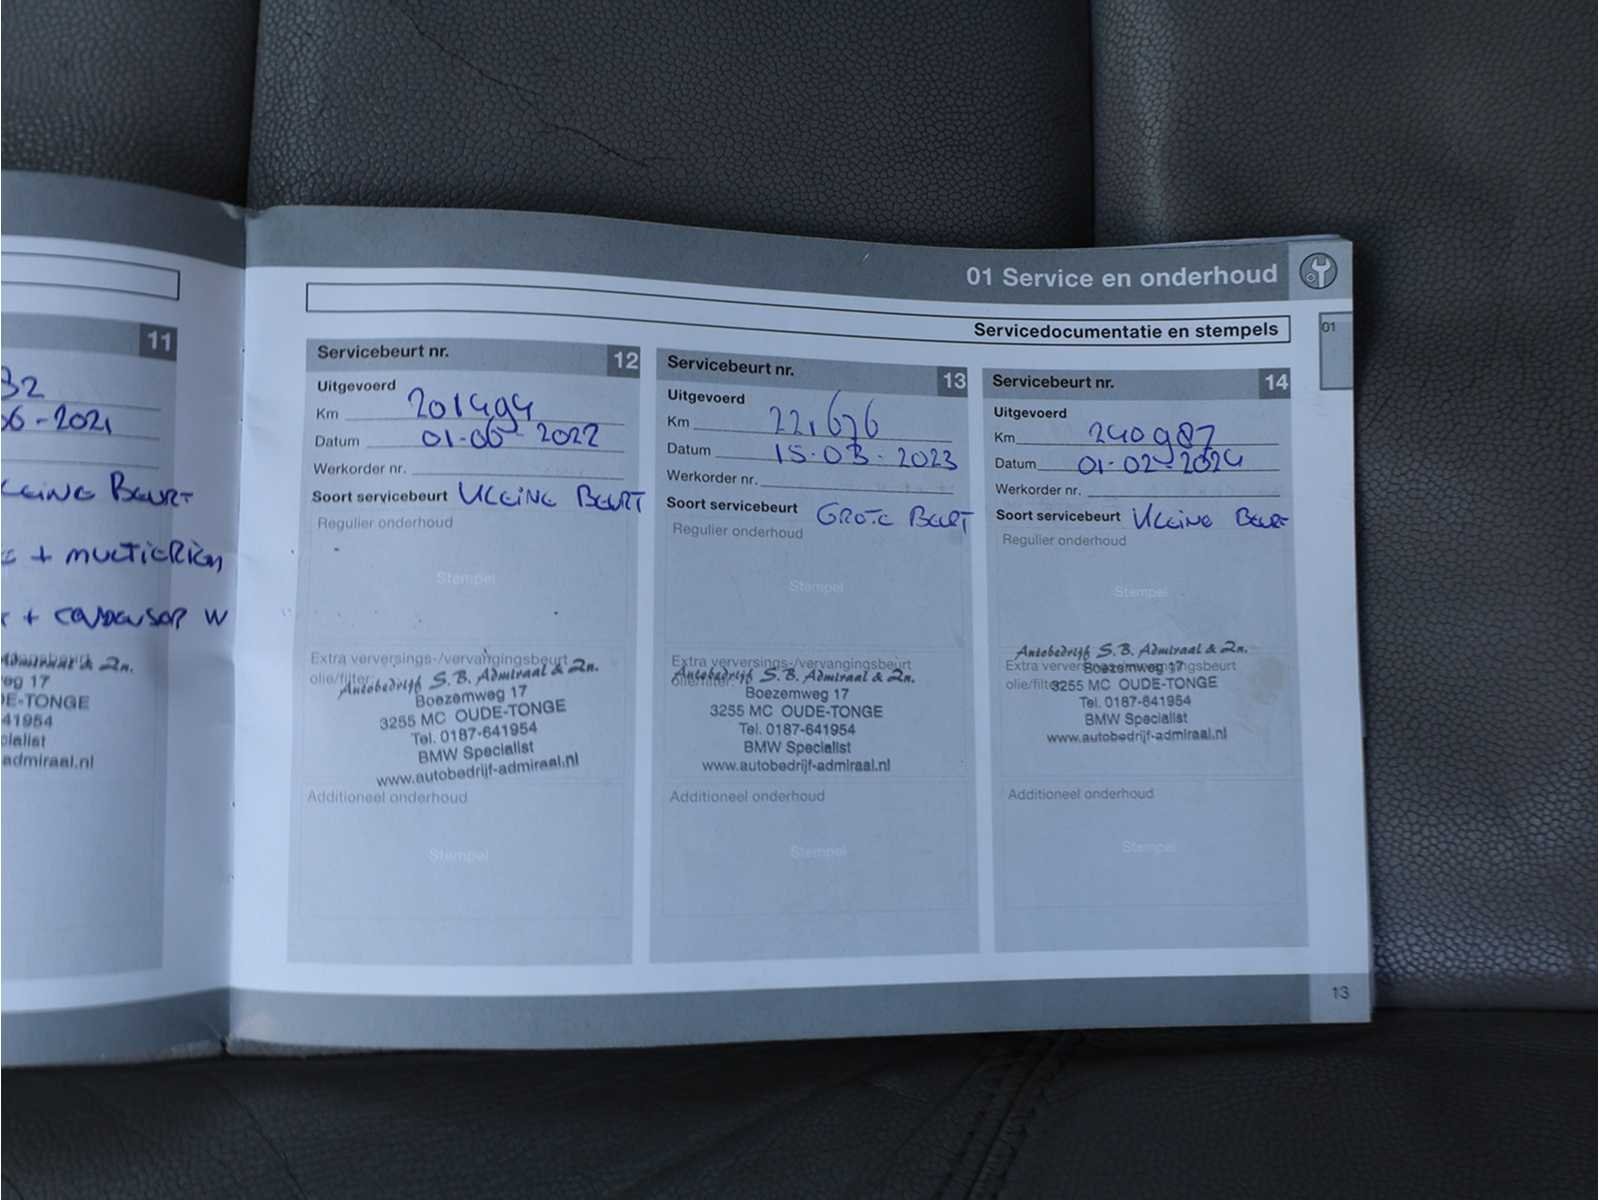 11
32
06-2021
KLEINE BEURT
+ MULTIRIEM
+ CONDENSOR W
Admiraal & Zn.
eg 17
DE-TONGE
41954
cialist
admiraal.nl
01 Service en onderhoud
Servicedocumentatie en stempels
01
Servicebeurt nr. 12
Uitgevoerd
Km 201494
Datum 01-06-2022
Werkorder nr.
Soort servicebeurt KLEINE BEURT
Regulier onderhoud
Stempel
Extra verversings-/vervangingsbeurt
olie/filter:
Autobedrijf S.B. Admiraal & Zn.
Boezemweg 17
3255 MC OUDE-TONGE
Tel. 0187-641954
BMW Specialist
www.autobedrijf-admiraal.nl
Additioneel onderhoud
Stempel
Servicebeurt nr. 13
Uitgevoerd
Km 221676
Datum 15-03-2023
Werkorder nr.
Soort servicebeurt GROTE BEURT
Regulier onderhoud
Stempel
Extra verversings-/vervangingsbeurt
olie/filter:
Autobedrijf S.B. Admiraal & Zn.
Boezemweg 17
3255 MC OUDE-TONGE
Tel. 0187-641954
BMW Specialist
www.autobedrijf-admiraal.nl
Additioneel onderhoud
Stempel
Servicebeurt nr. 14
Uitgevoerd
Km 240987
Datum 01-02-2024
Werkorder nr.
Soort servicebeurt KLEINE BEURT
Regulier onderhoud
Stempel
Autobedrijf S.B. Admiraal & Zn.
Extra verversings-/vervangingsbeurt
Boezemweg 17
olie/filter:
3255 MC OUDE-TONGE
Tel. 0187-641954
BMW Specialist
www.autobedrijf-admiraal.nl
Additioneel onderhoud
Stempel
13